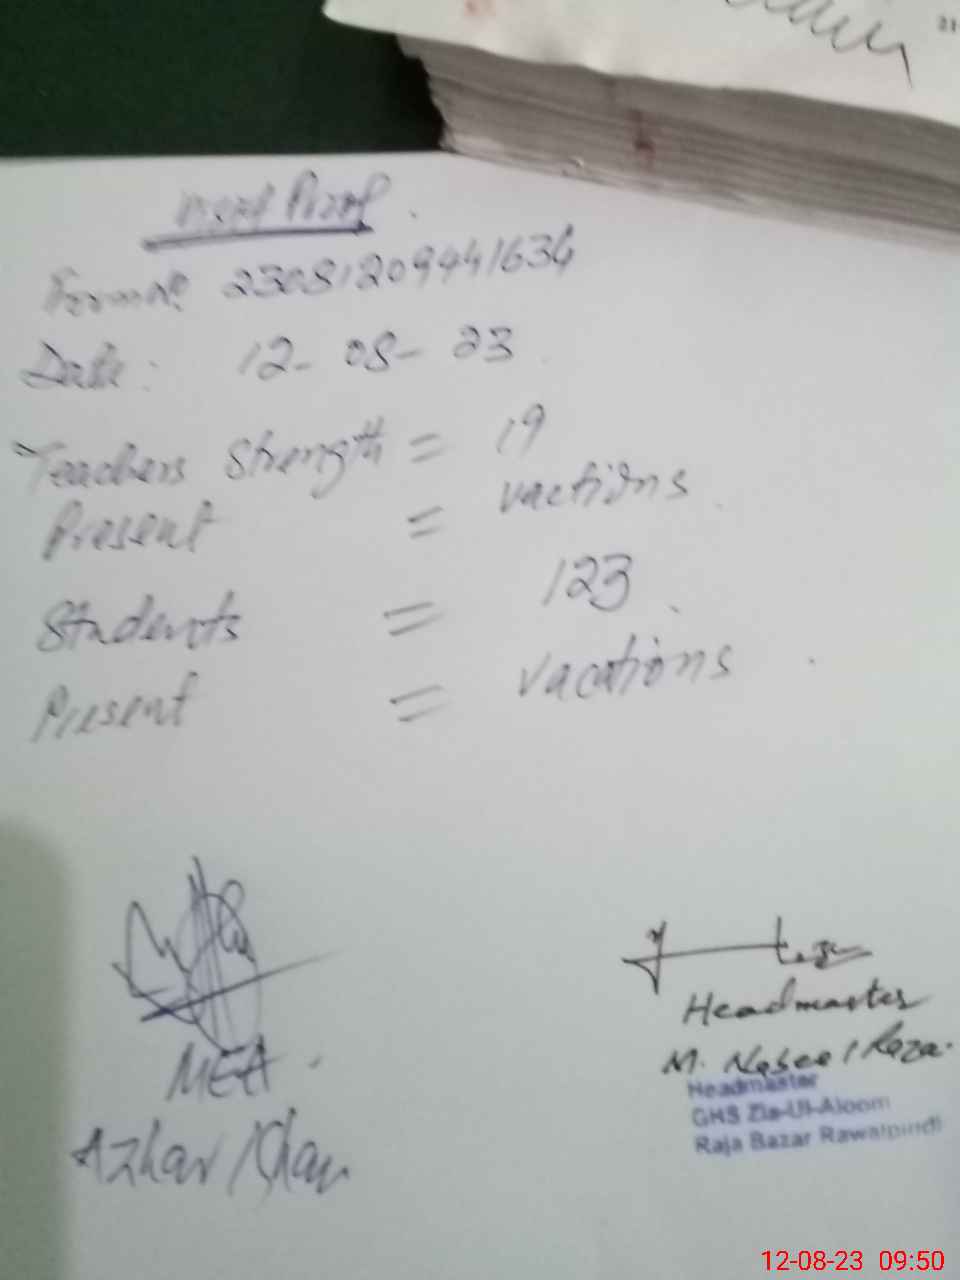 Proof
Form No 23081209441634
Date: 12-08-23
Teachers Strength = 19
Present = vactions
Students = 123
Present = vacations
Headmaster
MEA
M. Naseer Raza
Headmaster
GHS Zia-Ul-Aloom
Raja Bazar Rawalpindi
Azhar Khan
12-08-23 09:50